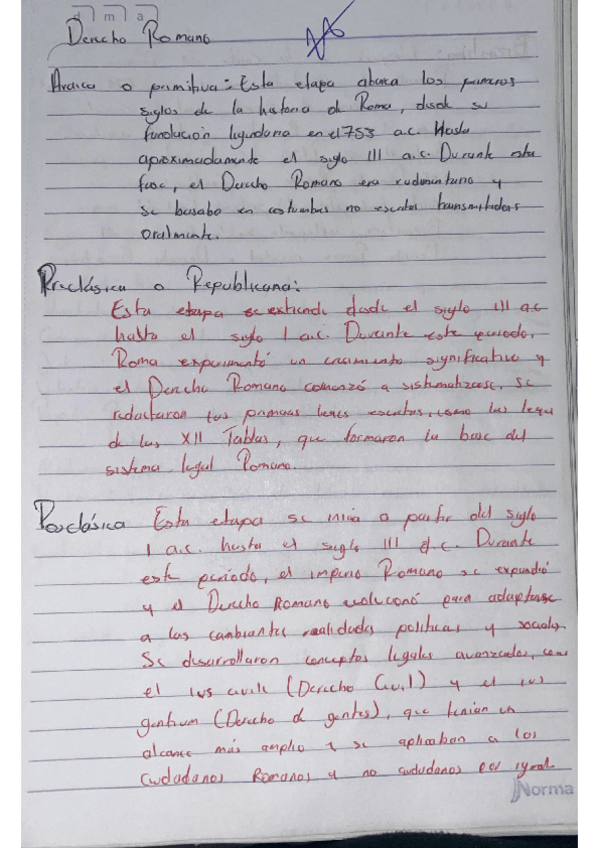 d m a
Derecho Romano
Araica o primitiva: Esta etapa abarca los primeros
siglos de la historia de Roma, desde su
fundación legendaria en el 753 a.c. Hasta
aproximadamente el siglo III a.c. Durante esta
fase, el Derecho Romano era rudimentario y
se basaba en costumbres no escritas transmitidas
oralmente.
Preclásica o Republicana:
Esta etapa se extiende desde el siglo III a.c
hasta el siglo I a.c. Durante este periodo,
Roma experimentó un crecimiento significativo y
el Derecho Romano comenzó a sistematizarse, se
redactaron las primeras leyes escritas, como las leyes
de las XII Tablas, que formaron la base del
sistema legal Romano.
Posclásica Esta etapa se inicia a partir del siglo
I a.c. hasta el siglo III d.c. Durante
este período, el imperio Romano se expandió
y el Derecho Romano evolucionó para adaptarse
a las cambiantes realidades políticas y sociales.
Se desarrollaron conceptos legales avanzados, como
el ius civile (Derecho Civil) y el ius
gentium (Derecho de gentes), que tenían un
alcance más amplio y se aplicaban a los
Ciudadanos Romanos y no ciudadanos por igual
Norma